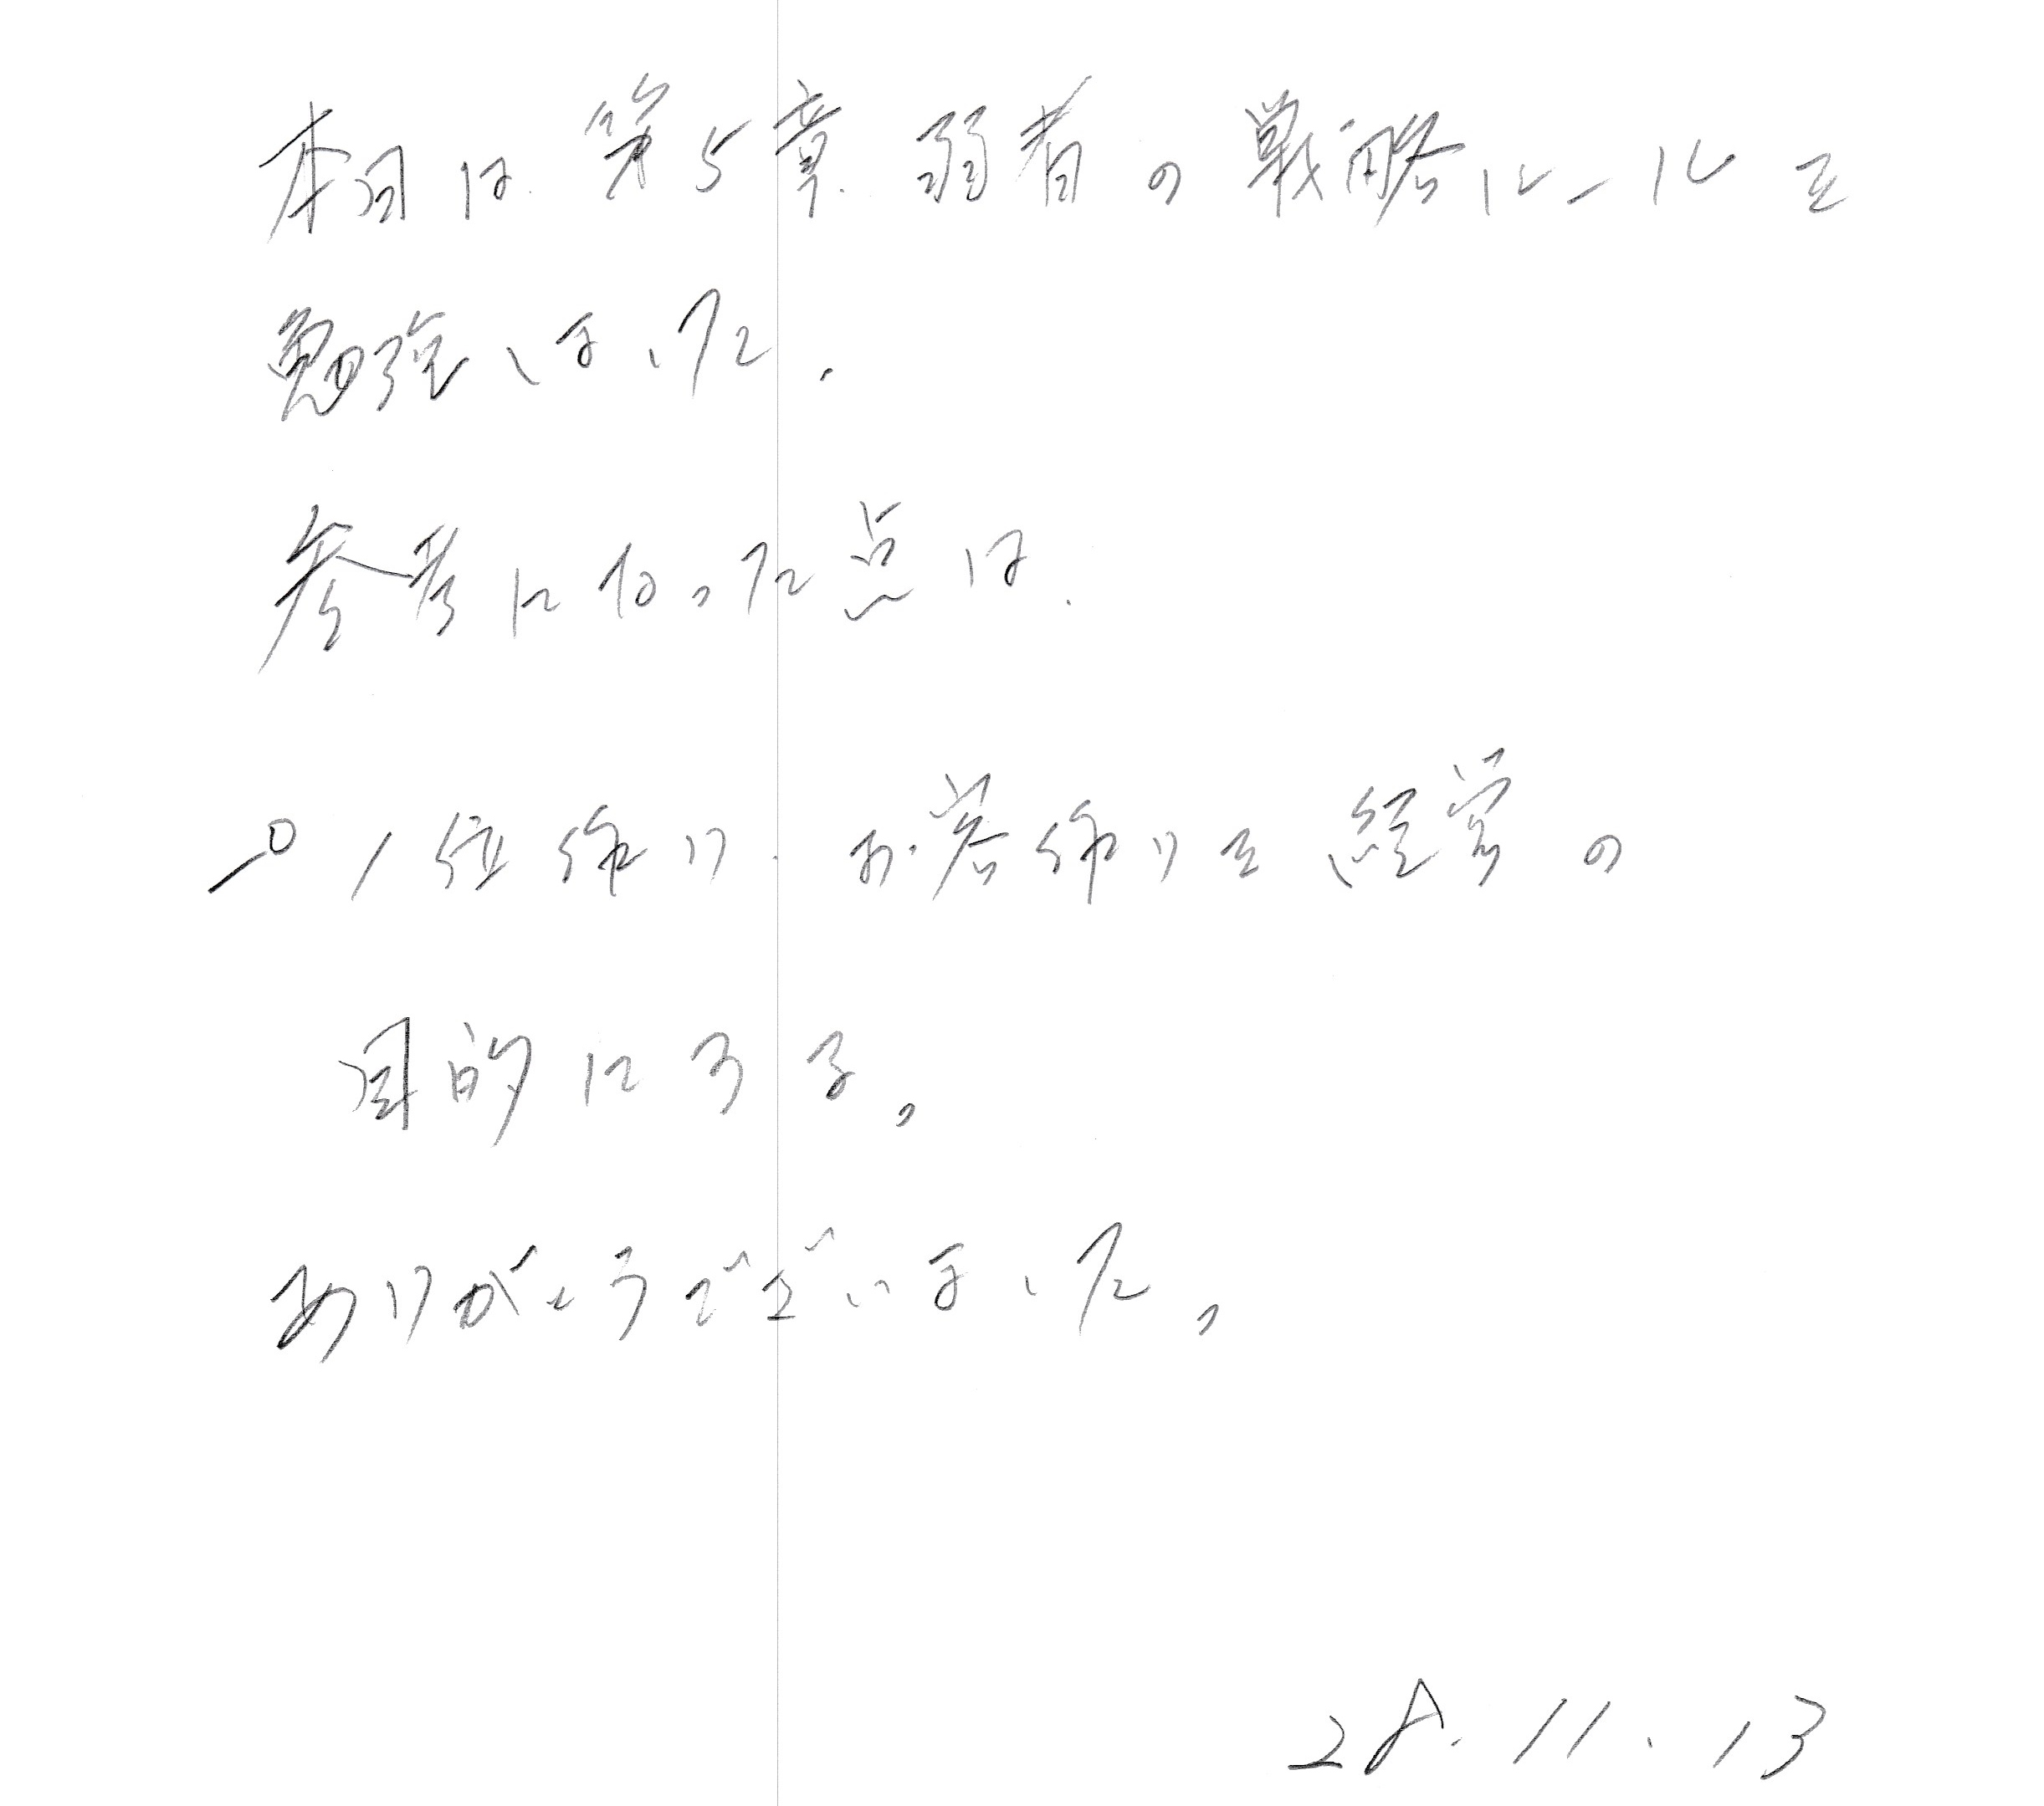 本日は、第5章、弱者の戦略ルールを
勉強しました。
参考になった点は、
○1位作り、お客作りを経営の
目的にする。
ありがとうございました。
28.11.13